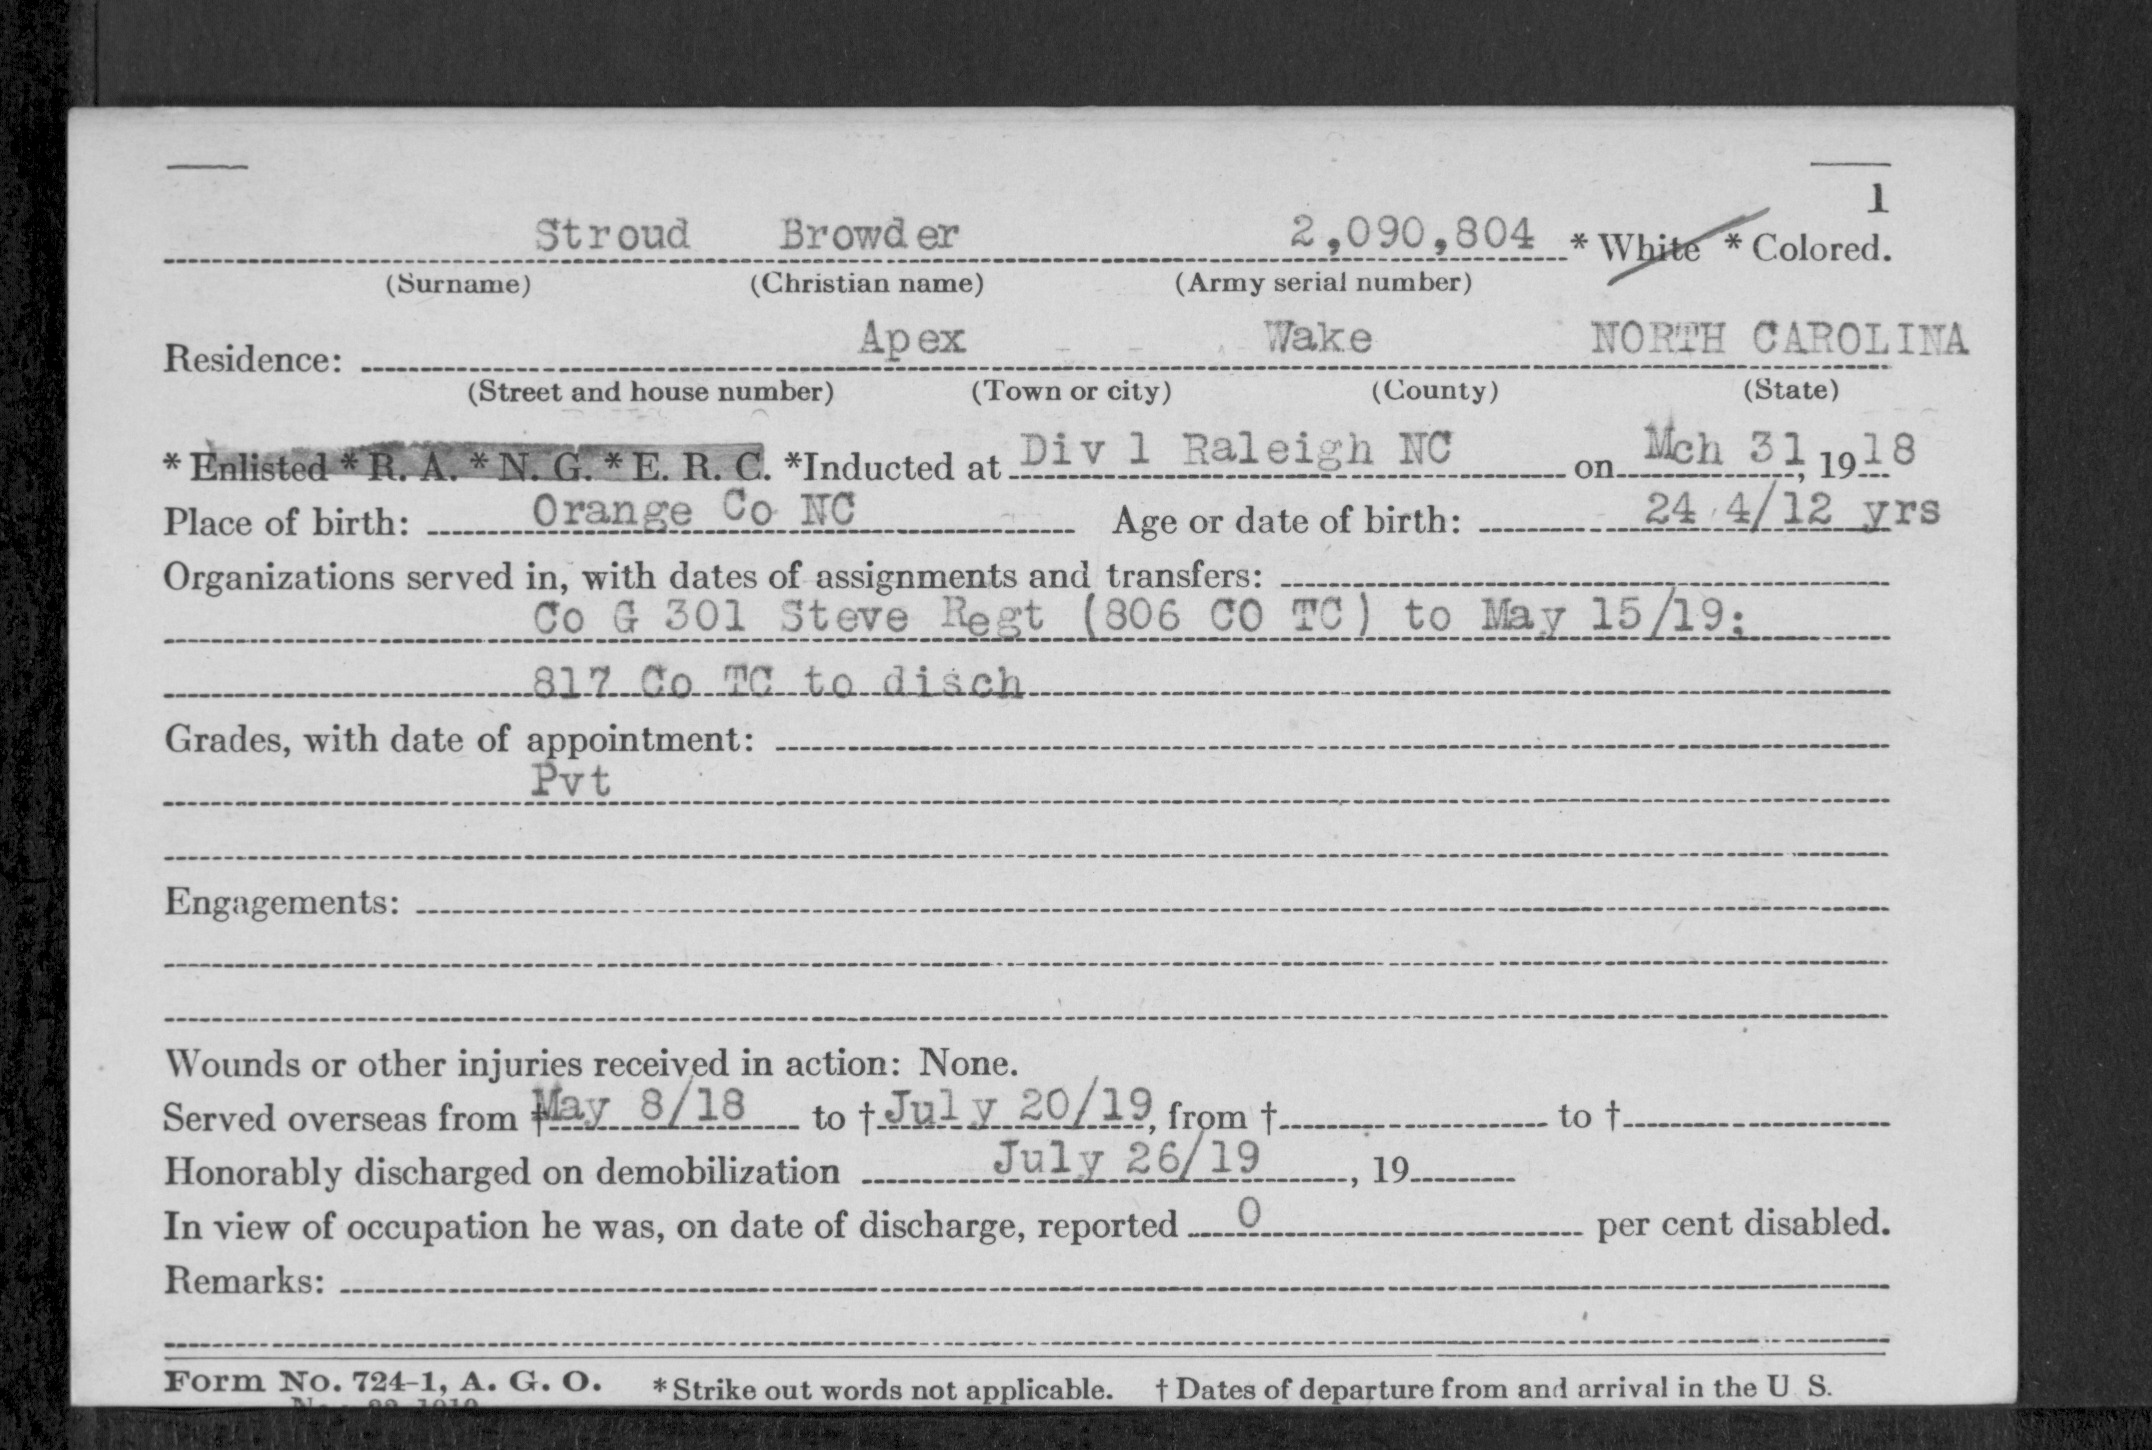 1
Stroud Browder 2,090,804 * White * Colored.
(Surname) (Christian name) (Army serial number)
Apex Wake NORTH CAROLINA
Residence:
(Street and house number) (Town or city) (County) (State)
* Enlisted * R. A. * N. G. * E. R. C. *Inducted at Div 1 Raleigh NC on Mch 31, 1918
Place of birth: Orange Co NC Age or date of birth: 24 4/12 yrs
Organizations served in, with dates of assignments and transfers:
Co G 301 Steve Regt (806 CO TC) to May 15/19;
817 Co TC to disch
Grades, with date of appointment:
Pvt
Engagements:
Wounds or other injuries received in action: None.
Served overseas from † May 8/18 to † July 20/19, from † to †
Honorably discharged on demobilization July 26/19, 19
In view of occupation he was, on date of discharge, reported 0 per cent disabled.
Remarks:
Form No. 724-1, A. G. O. * Strike out words not applicable. † Dates of departure from and arrival in the U S.